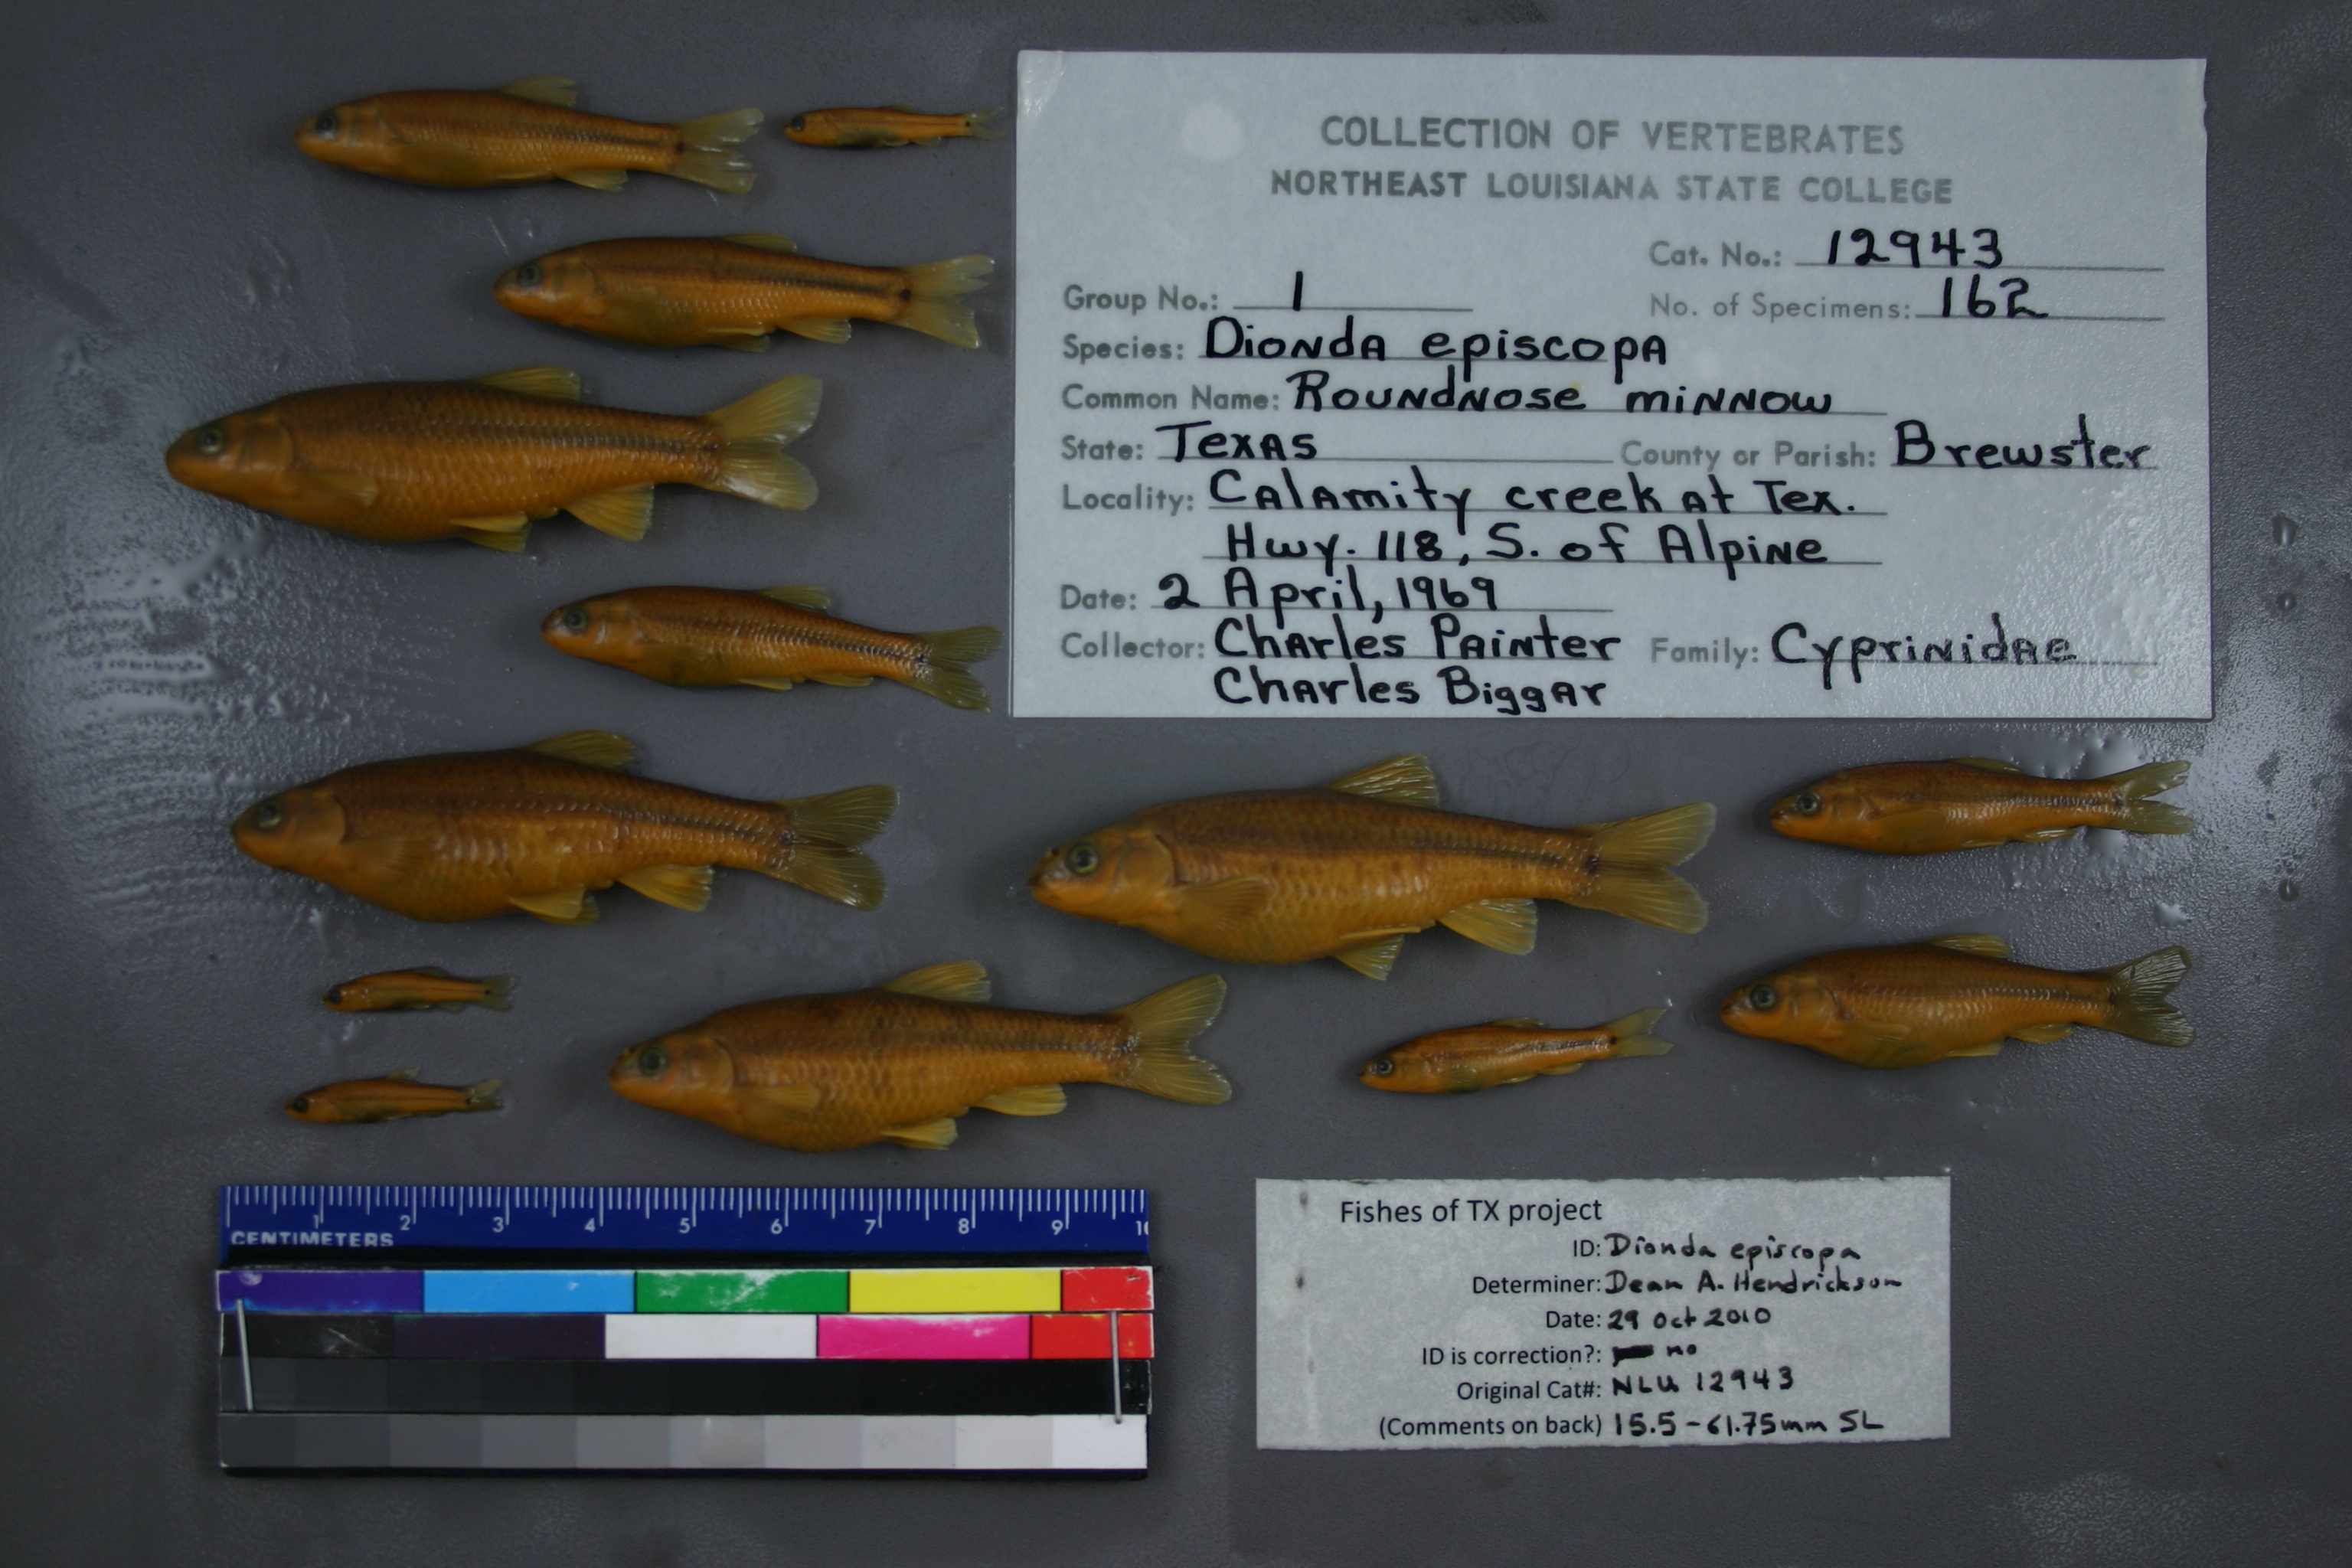 COLLECTION OF VERTEBRATES
NORTHEAST LOUISIANA STATE COLLEGE
Cat. No.: 12943
Group No.: 1 No. of Specimens: 162
Species: Dionda episcopa
Common Name: Roundnose minnow
State: Texas County or Parish: Brewster
Locality: Calamity creek at Tex.
Hwy. 118, S. of Alpine
Date: 2 April, 1969
Collector: Charles Painter Family: Cyprinidae
Charles Biggar
1 2 3 4 5 6 7 8 9 10
CENTIMETERS
Fishes of TX project
ID: Dionda episcopa
Determiner: Dean A. Hendrickson
Date: 29 Oct 2010
ID is correction?: no
Original Cat#: NLU 12943
(Comments on back) 15.5-61.75mm SL